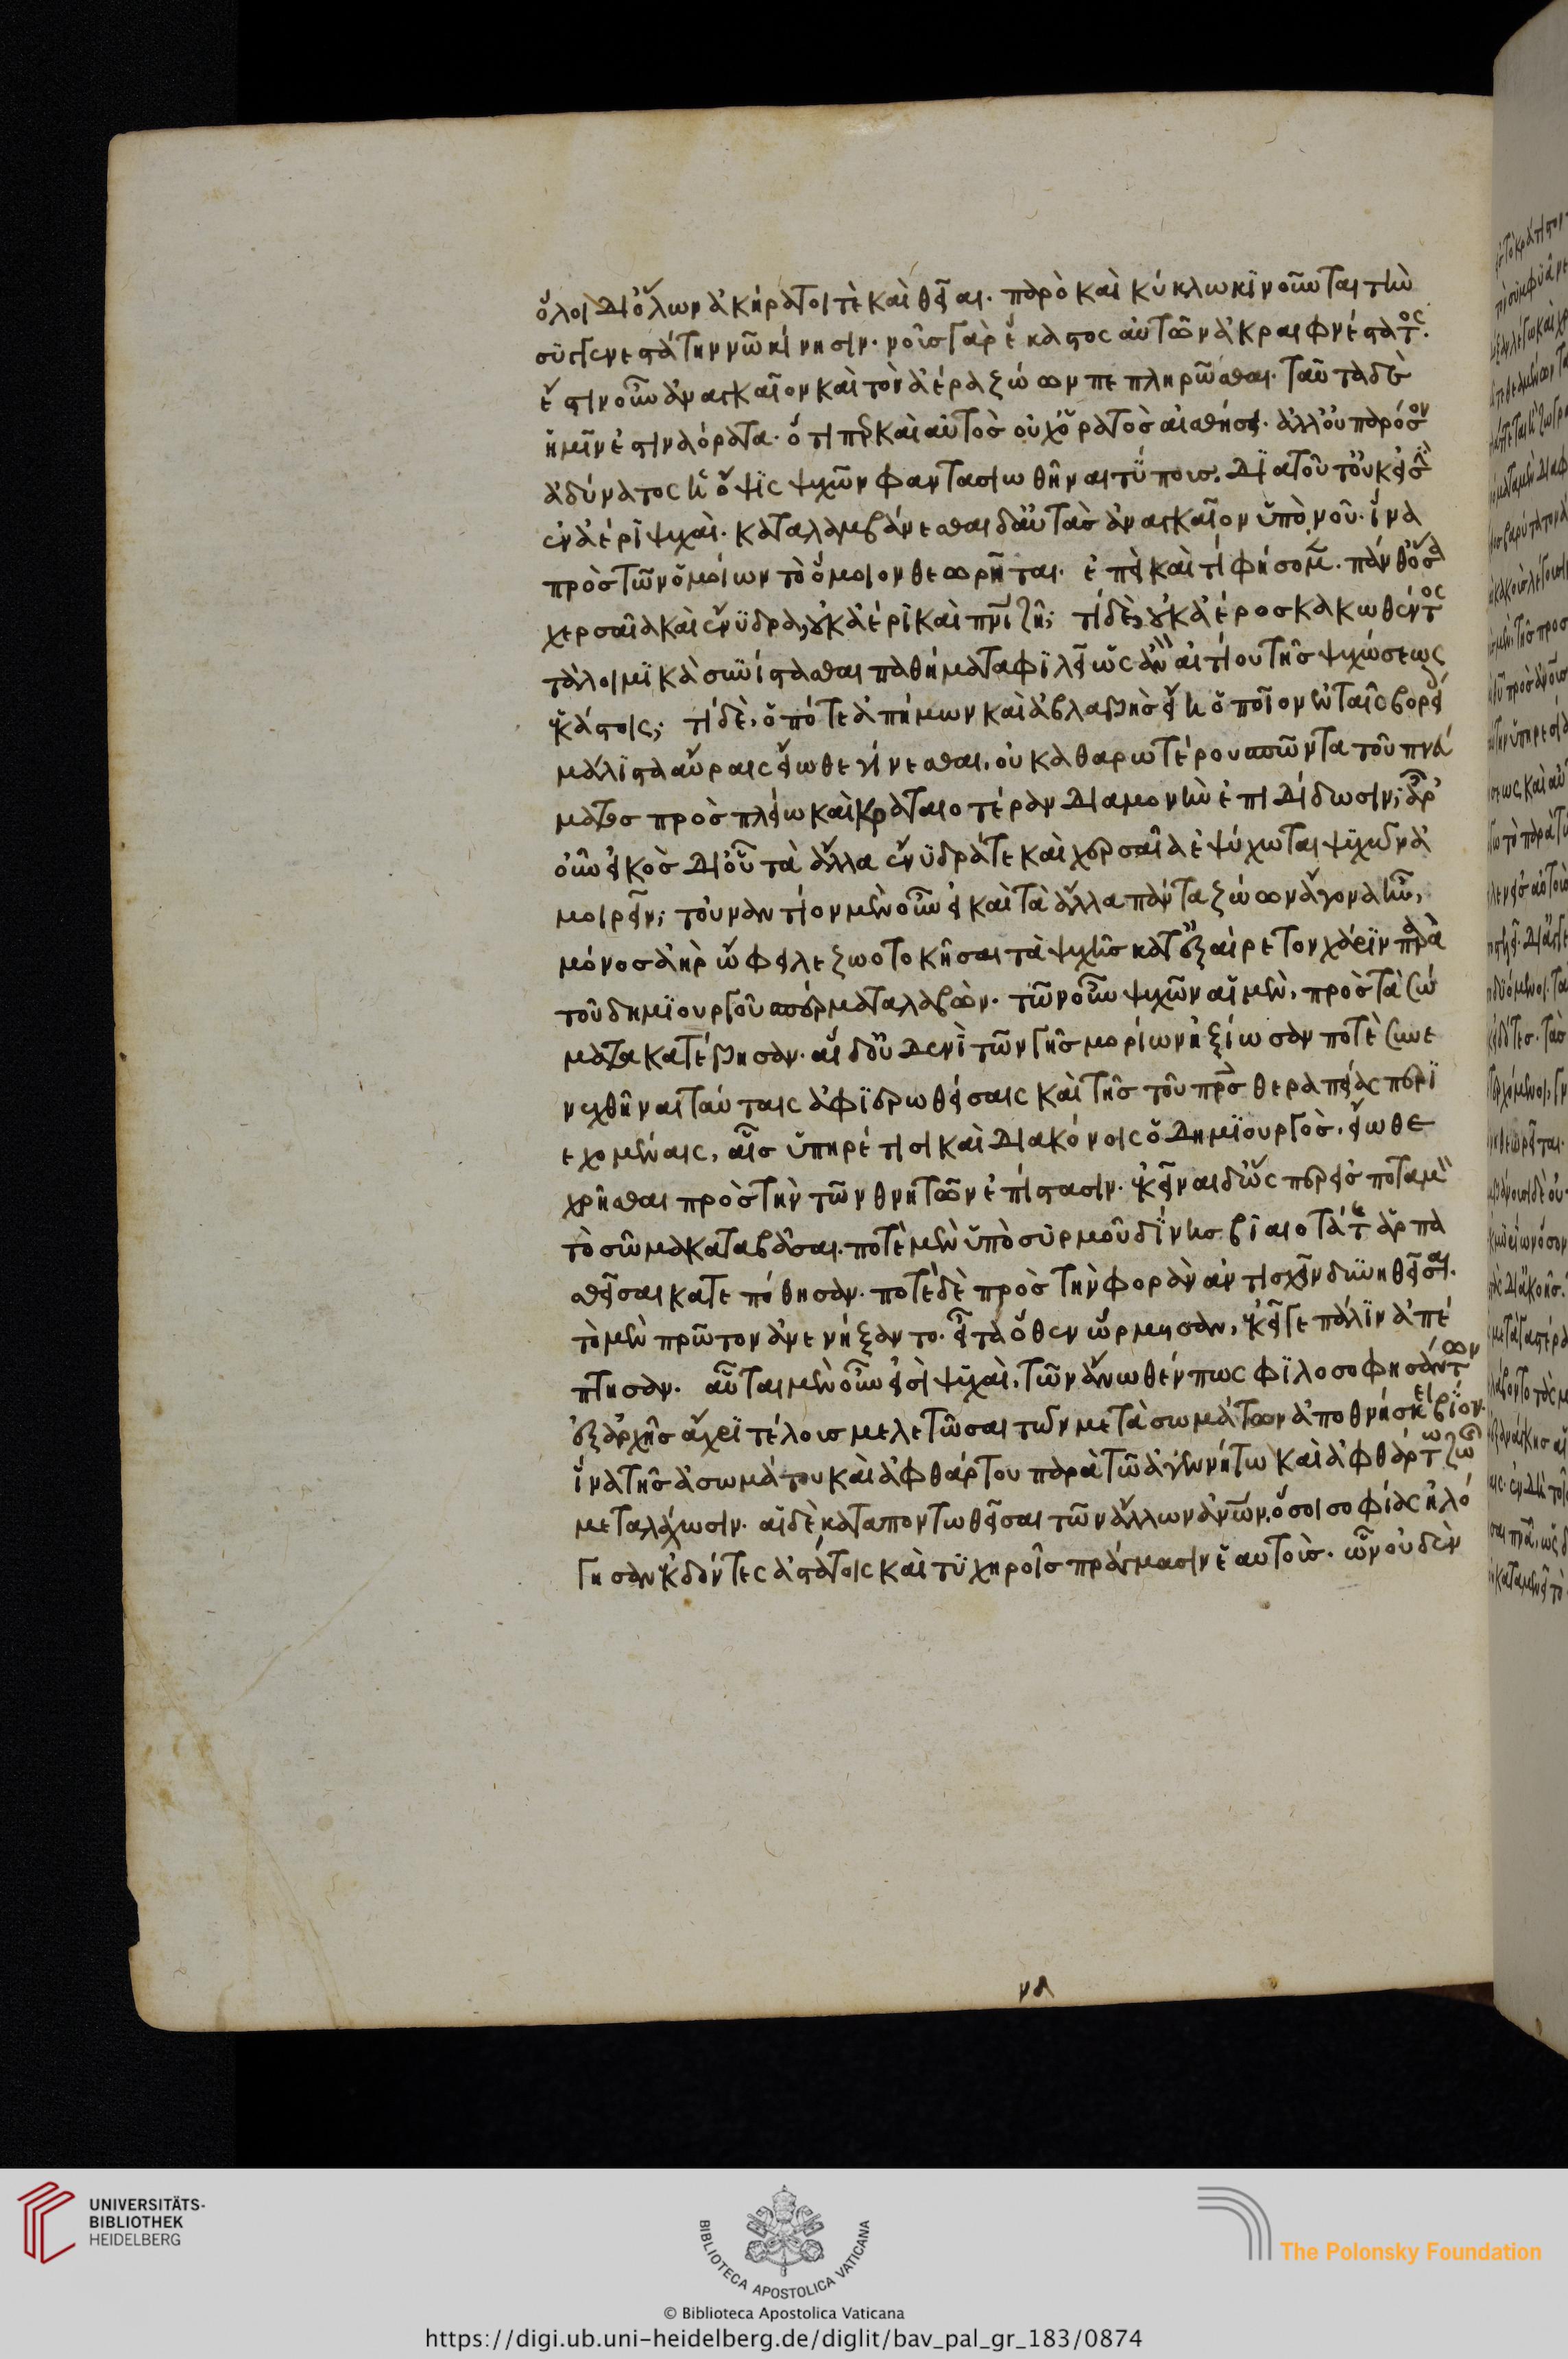 ὅλοι δι' ὅλων ἀκήρατοί τε καὶ θεῖαι. παρὸ καὶ κύκλω κινοῦνται τὴν
συγγενεστάτην νῶ κίνησιν. νοῦς γὰρ ἕκαστος αὐτῶν ἀκραιφνέστατος.
ἔστιν οὖν ἀναγκαῖον καὶ τὸν ἀέρα ζώων πεπληρῶσθαι. ταῦτα δὲ
ἡμῖν ἐστιν ἀόρατα. ὅτι περ καὶ αὐτὸς οὐχ ὁρατὸς αἰσθήσει. ἀλλ' οὐ παρόσον
ἀδύνατος ἡ ὄψις ψυχῶν φαντασιωθῆναι τύποις. διὰ τοῦτ' οὐκ εἰσὶν
ἐν ἀέρι ψυχαί. καταλαμβάνεσθαι δ' αὐτὰς ἀναγκαῖον ὑπὸ νοῦ. ἵνα
πρὸς τῶν ὁμοίων τὸ ὅμοιον θεωρῆται. ἐπεὶ καὶ τί φήσομεν. πάνθ' ὅσα
χερσαῖα καὶ ἔνυδρα, οὐκ ἀέρι καὶ πνι ζῆ; τί δὲ, οὐκ ἀέρος κακωθέντος
τὰ λοιμικὰ συνίστασθαι παθήματα φιλεῖ ὡς ἂν αἰτίου τῆς ψυχώσεως
ἑκάστοις; τί δὲ, ὁπότε ἀπήμων καὶ ἀβλαβὴς εἴη ὁποῖον ἐν ταῖς βορεί
μάλιστα αὔραις εἴωθε γίνεσθαι, οὐ καθαρωτέρου σπῶντα τοῦ πνεύ
ματος πρὸς πλείω καὶ κραταιοτέραν διαμονὴν ἐπιδίδωσιν; ἆρ'
οὖν εἰκὸς δι' οὗ τὰ ἄλλα ἔνυδρά τε καὶ χερσαῖα ἐψύχωται ψυχῶν ἀ
μοιρεῖν; τοὐναντίον μὲν οὖν εἰ καὶ τὰ ἄλλα πάντα ζώων ἄγονα ἦν,
μόνος ἀὴρ ὤφειλε ζωοτοκῆσαι τὰ ψυχῆς κατ' ἐξαίρετον χάριν παρὰ
τοῦ δημιουργοῦ σπέρματα λαβών. τῶν οὖν ψυχῶν αἱ μὲν, πρὸς τὰ σώ
ματα κατέβησαν. αἱ δ' οὐδενὶ τῶν γῆς μορίων ἠξίωσάν ποτε συνε
νεχθῆναι ταύταις ἀφιερωθείσαις καὶ τῆς τοῦ πρς θεραπείας περι
εχομέναις, αἷς ὑπηρέτισι καὶ διακόνοις ὁ δημιουργὸς, εἴωθε
χρῆσθαι πρὸς τὴν τῶν θνητῶν ἐπίστασιν. ἐκεῖναι δ' ὡς περ εἰς ποταμὸν
τὸ σῶμα καταβᾶσαι. ποτὲ μὲν ὑπὸ συρμοῦ δίνης βιαιοτάτης ἁρπα
σθεῖσαι κατεπόθησαν. ποτὲ δὲ πρὸς τὴν φορὰν ἀντισχεῖν δυνηθεῖσαι.
τὸ μὲν πρῶτον ἀνενήξαντο. εἶτα ὅθεν ὥρμησαν, ἐκεῖσε πάλιν ἀπέ
πτησαν. αὗται μὲν οὖν εἰσὶ ψυχαὶ, τῶν ἄνωθέν πως φιλοσοφησάντων
ἐξ ἀρχῆς ἄχρι τέλους μελετῶσαι τὸν μετὰ σωμάτων ἀποθνήσκειν βίον.
ἵνα τῆς ἀσωμάτου καὶ ἀφθάρτου παρὰ τῶ ἀγεννήτω καὶ ἀφθάρτω ζωῆς
μεταλάχωσιν. αἱ δὲ καταποντωθεῖσαι τῶν ἄλλων ἀνων, ὅσοι σοφίας ἠλό
γησαν ἐκδόντες ἀστάτοις καὶ τυχηροῖς πράγμασιν ἑαυτοὺς. ὧν οὐδὲν
UNIVERSITÄTS-
BIBLIOTHEK
HEIDELBERG
BIBLIOTECA APOSTOLICA VATICANA
The Polonsky Foundation
© Biblioteca Apostolica Vaticana
https://digi.ub.uni-heidelberg.de/diglit/bav_pal_gr_183/0874